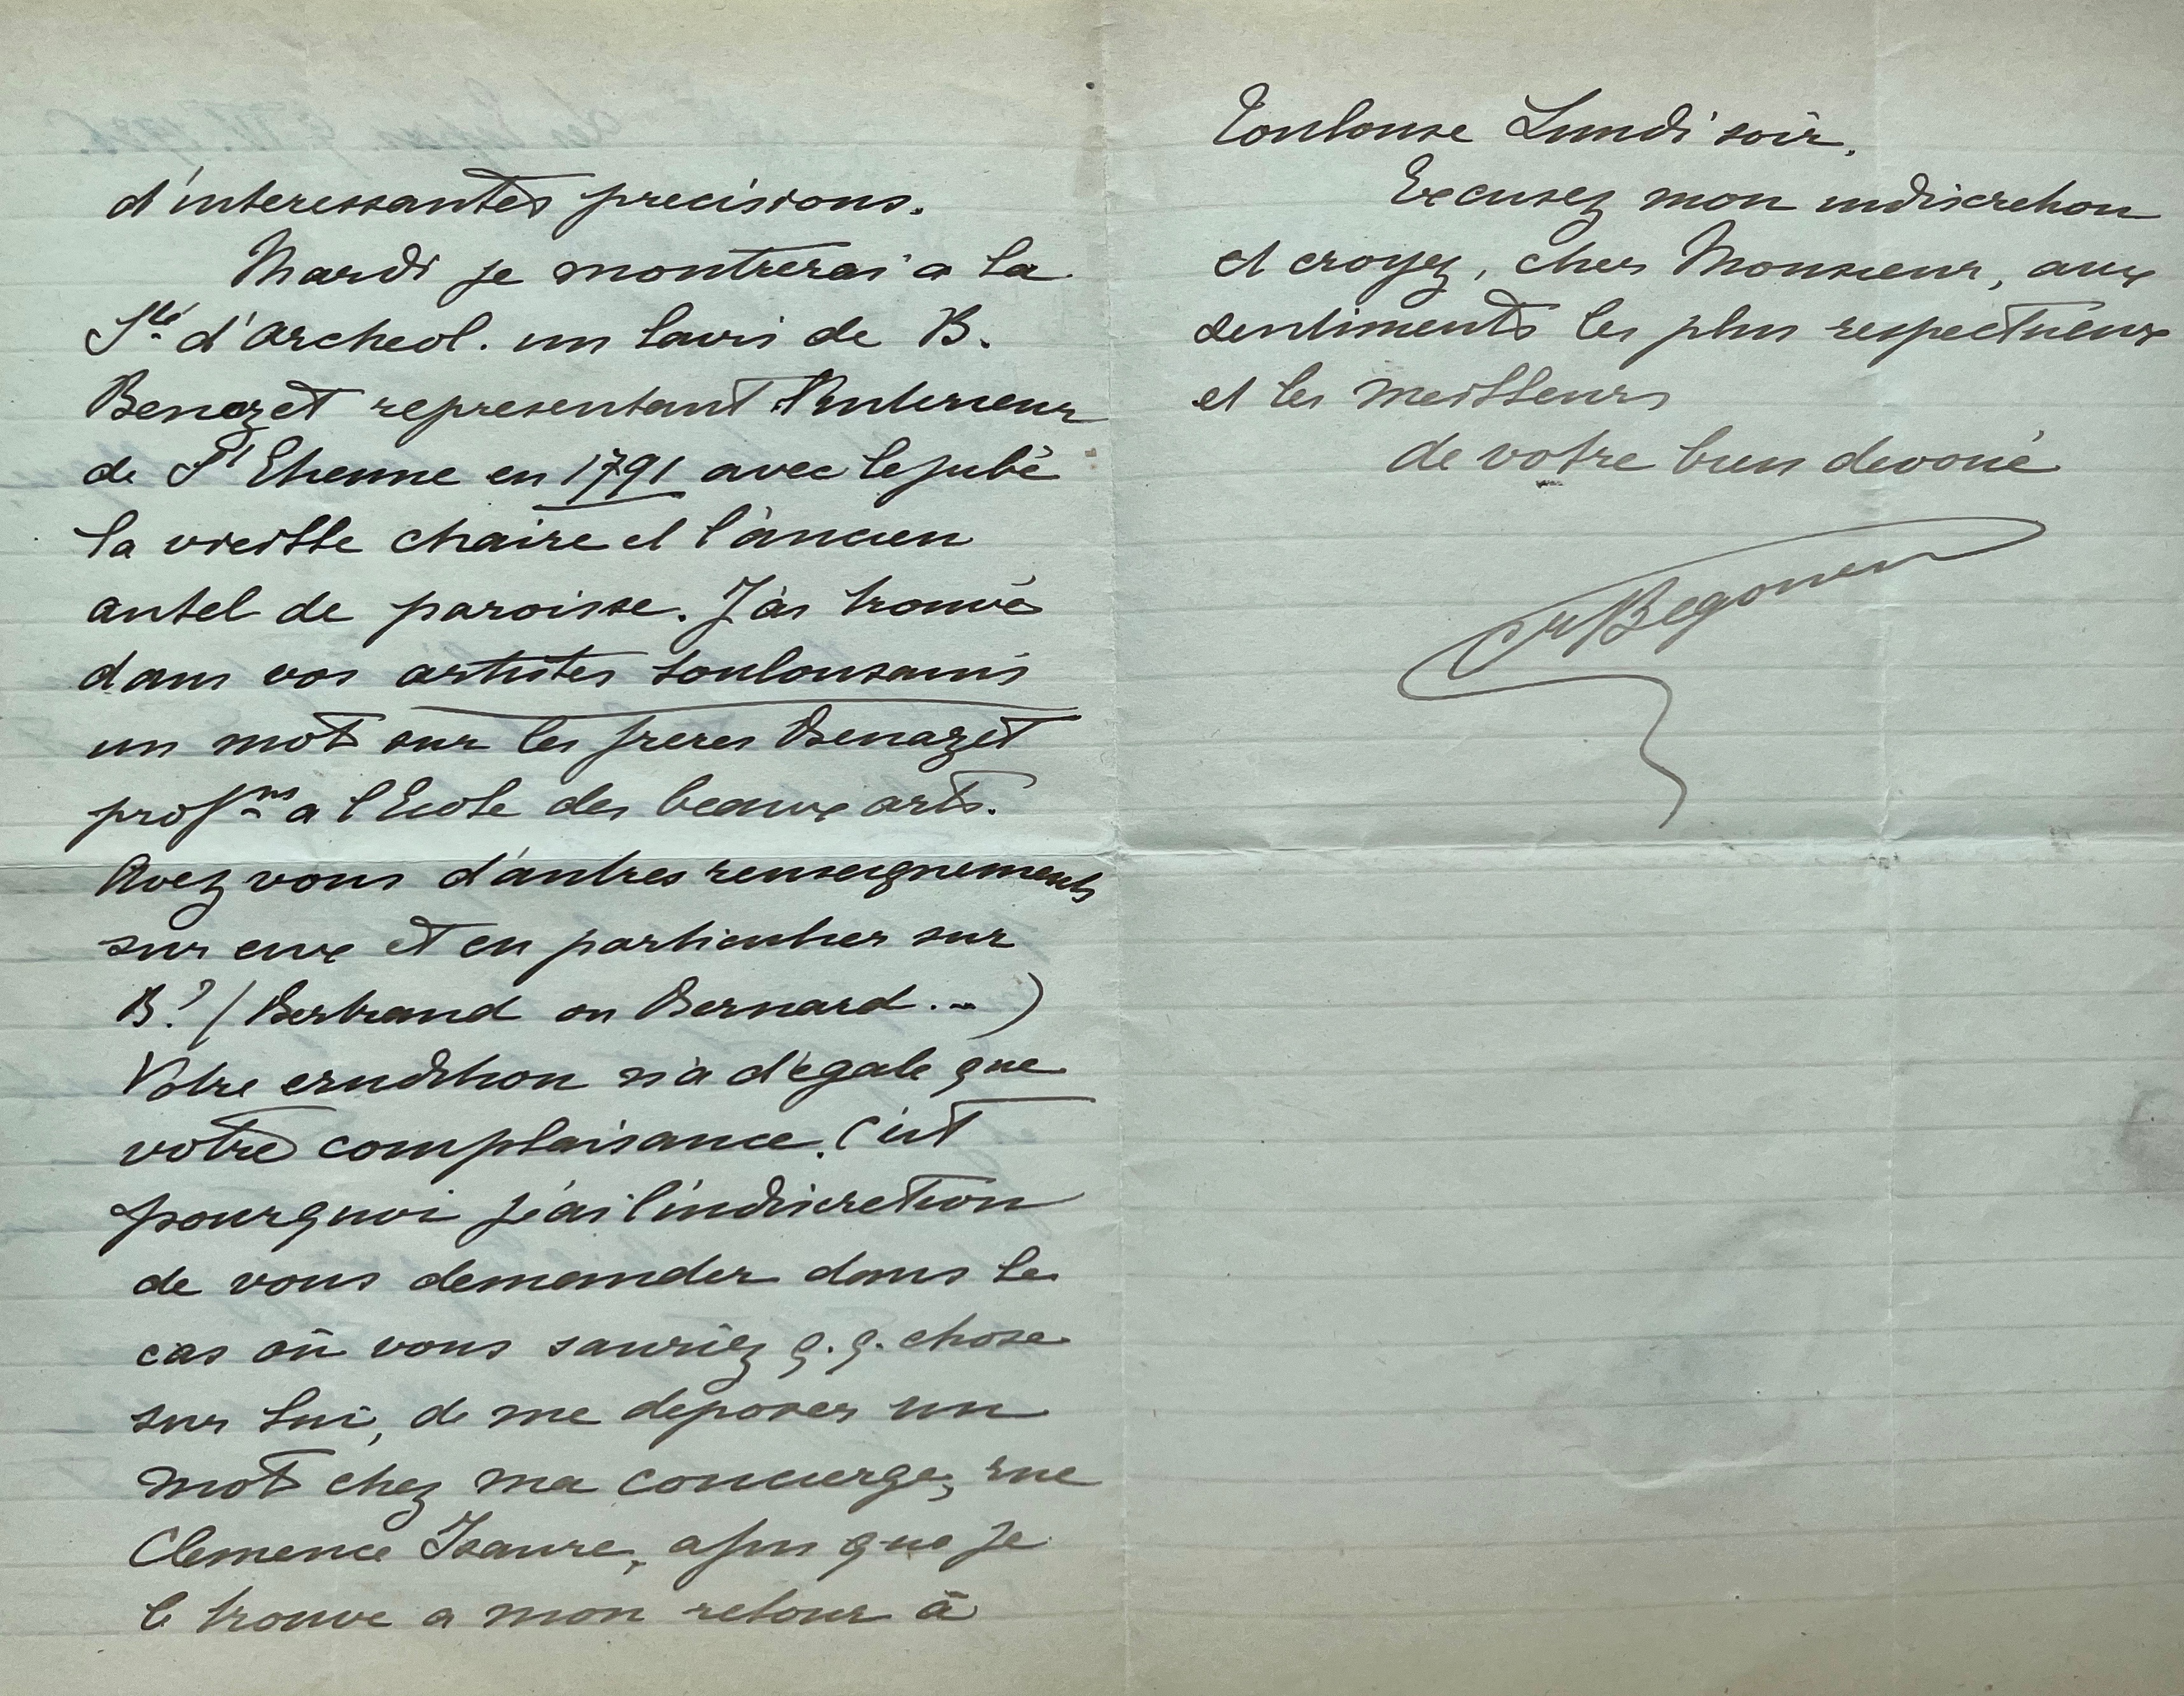 d'interessantes precisions.
Mardi je montrerai a la
Sté d'Archeol. un lavis de B.
Benazet representant l'interieur
de St Etienne en 1791 avec le jubé
la vieille chaire et l'ancien
autel de paroisse. J'ai trouvé
dans vos artistes toulousains
un mot sur les freres Benazet
profrs a l'Ecole des beaux arts.
Avez vous d'autres renseignements
sur eux et en particulier sur
B? (Bertrand ou Bernard...)
Votre erudition n'a d'égale que
votre complaisance. C'est
pourquoi j'ai l'indiscretion
de vous demander dans le
cas où vous sauriez q.q. chose
sur lui, de me deposer un
mot chez ma concierge, rue
Clemence Isaure, afin que je
le trouve a mon retour à
Toulouse Lundi soir.
Excusez mon indiscretion
et croyez, cher Monsieur, aux
sentiments les plus respectueux
et les meilleurs
de votre bien devoué
Begouen